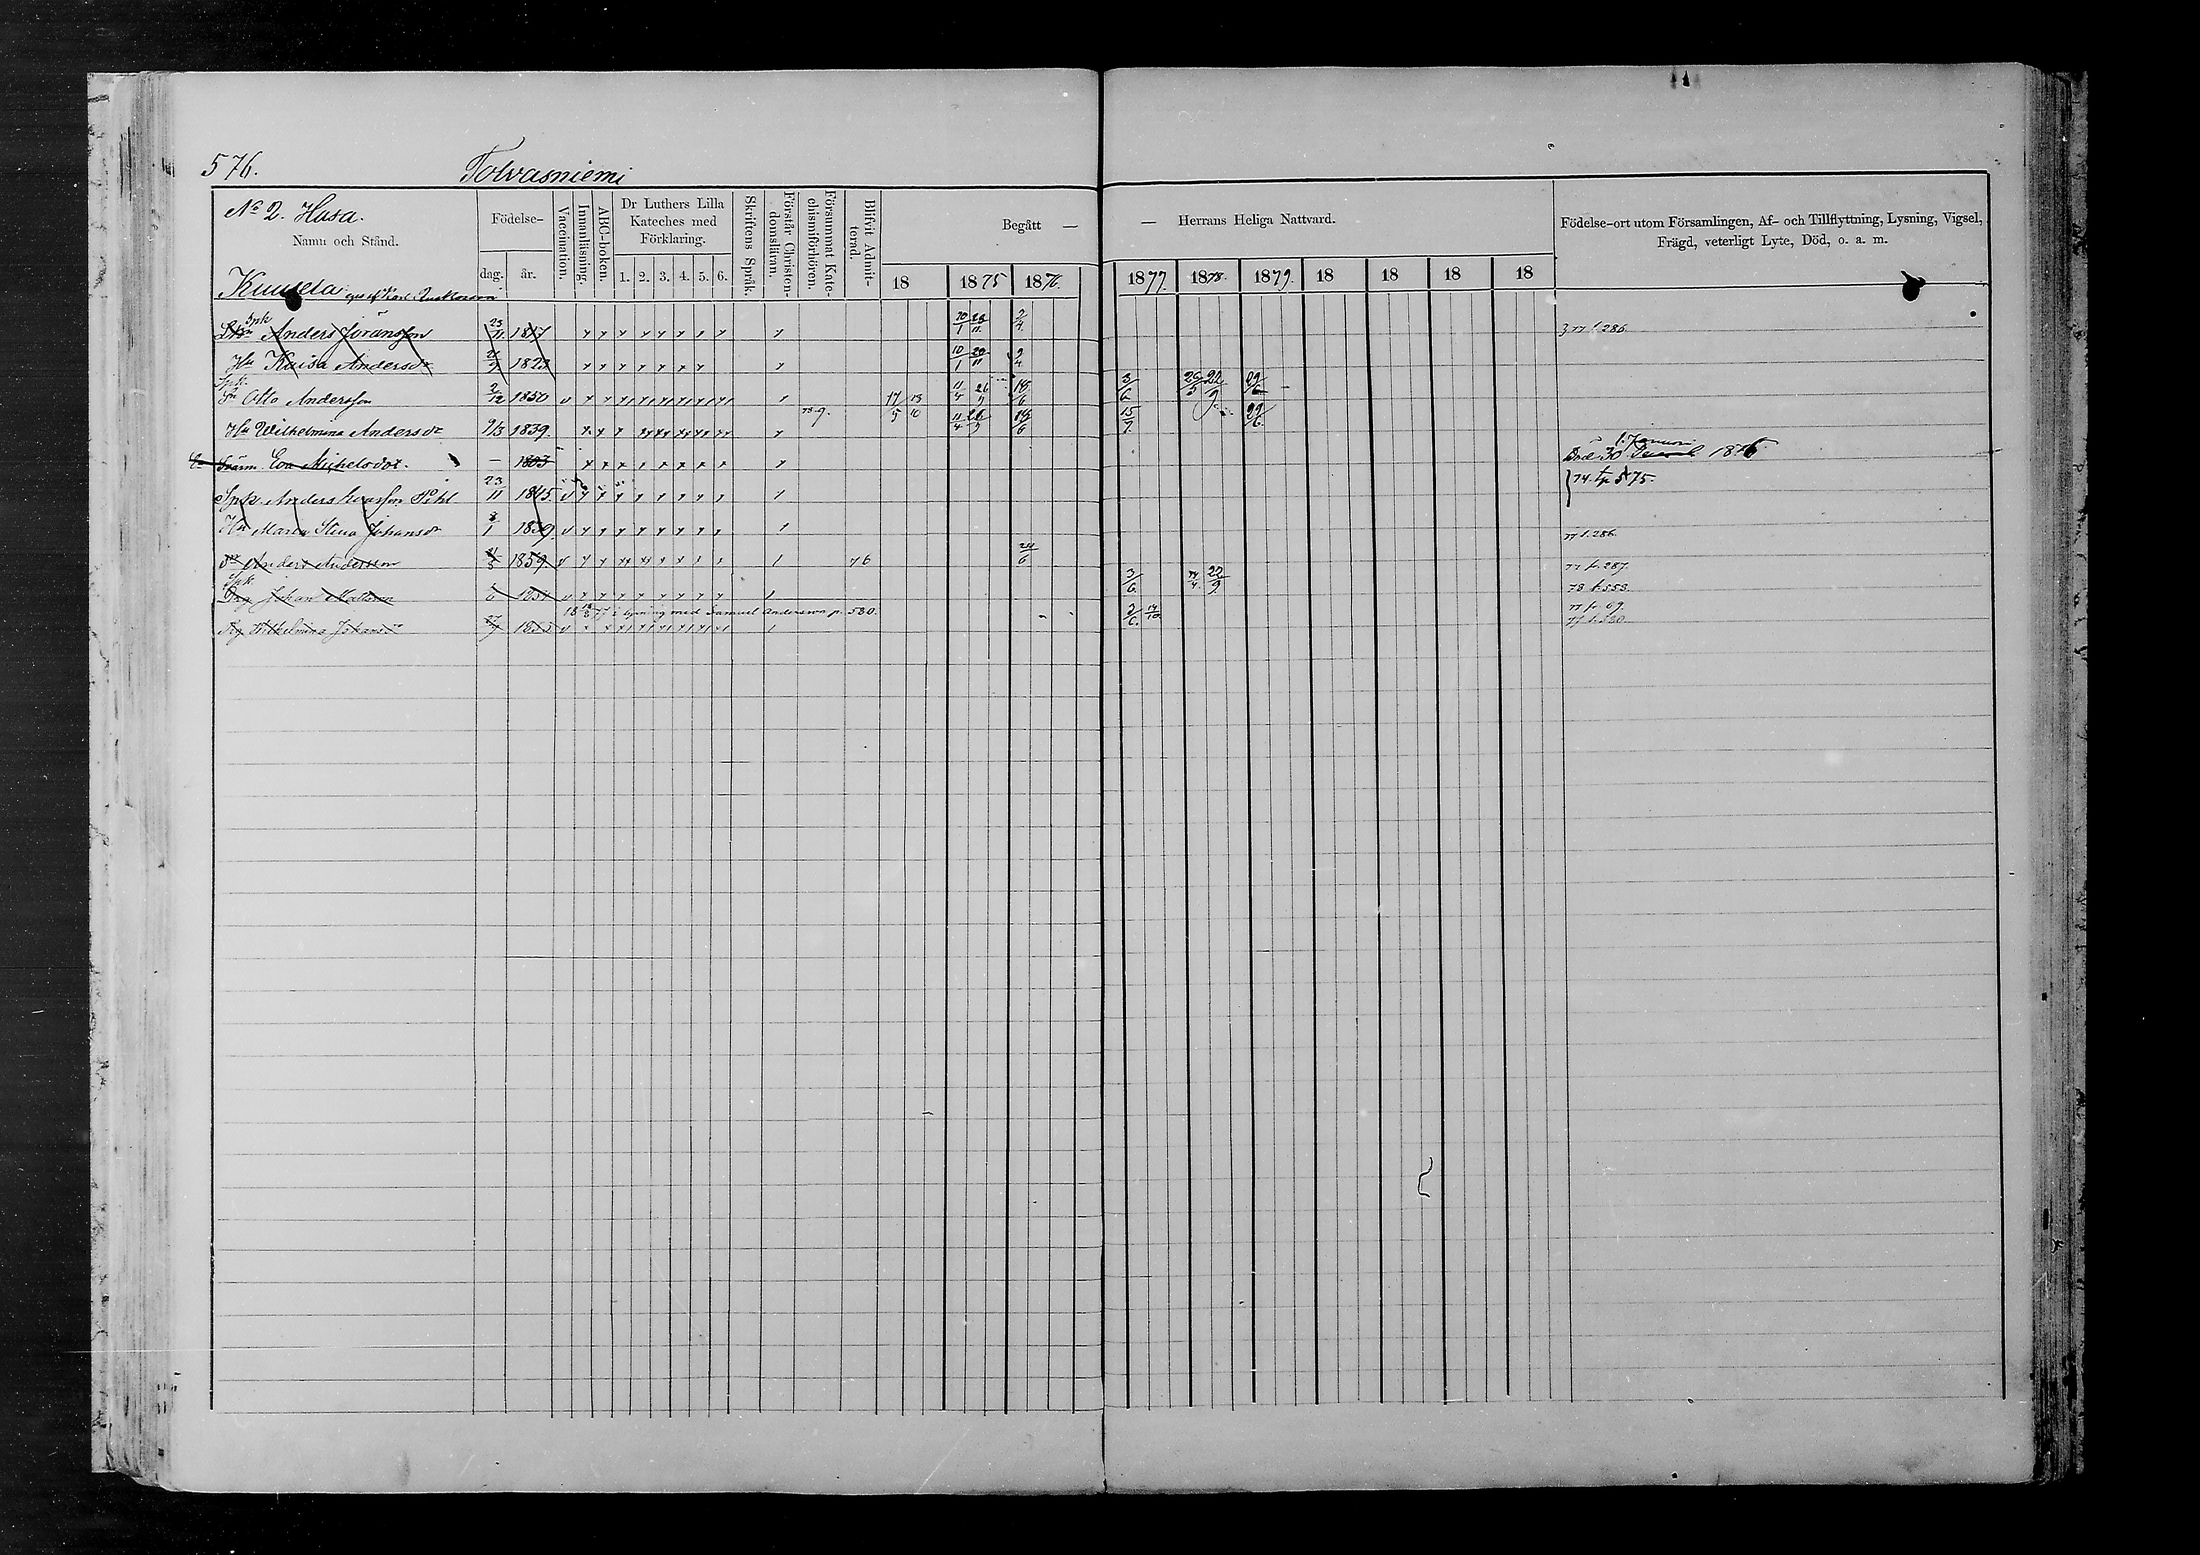 576. Tolvasniemi
No 2. Hasa.
Namn och Stånd.
Födelse-
dag. år.
Vaccination.
Innanläsning.
ABC-boken.
Dr Luthers Lilla Kateches med Förklaring.
1. 2. 3. 4. 5. 6.
Skriftens Språk.
Förstår Christendomsläran.
Försummat Katechismiförhören.
Blifvit Admitterad.
Begått — — Herrans Heliga Nattvard.
18 1875 1876 1877. 1878. 1879. 18 18 18 18
Födelse-ort utom Församlingen, Af- och Tillflyttning, Lysning, Vigsel,
Frägd, veterligt Lyte, Död, o. a. m.
Kuusela
Spk Anders Jöransson 23/11 1817 2/4 77 f. 286.
Hu Kaisa Andersdr 1823 10/1 2/4
Spk. Sn Otto Andersson 2/12 1850 17/5 13/10 18/6 3/6 29/6
Hu Wilhelmina Andersdr 9/3 1839. 73-9. 11/4 18/6 15/7 29/6
Eva Michelsdotr. — 1803 1. Januari Död 30 1876
Spk. Anders Ivarsson Pihl 23/11 1845 74. f. 575.
Hu Maria Stina Johansdr 1/1 1839 77 f. 286.
Anders Andersson 1859 76 24/6 77 f. 287.
Spk Johan Mattsson 3/6 22/9 78 f. 553.
18 77 i lysning med Samuel Andersson p. 580. 77 fr. 69.
Wilhelmina Johansdr 2/6. 14/10 77 f. 580